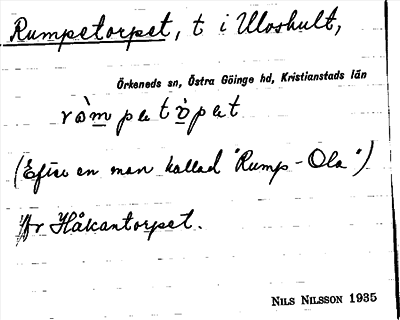 Rumpetorpet, t i Uloshult,
Örkeneds sn, Östra Göinge hd, Kristianstads län
ròm pə tòpət
(Efter en man kallad "Rump-Ola")
Är Håkantorpet.
NILS NILSSON 1935